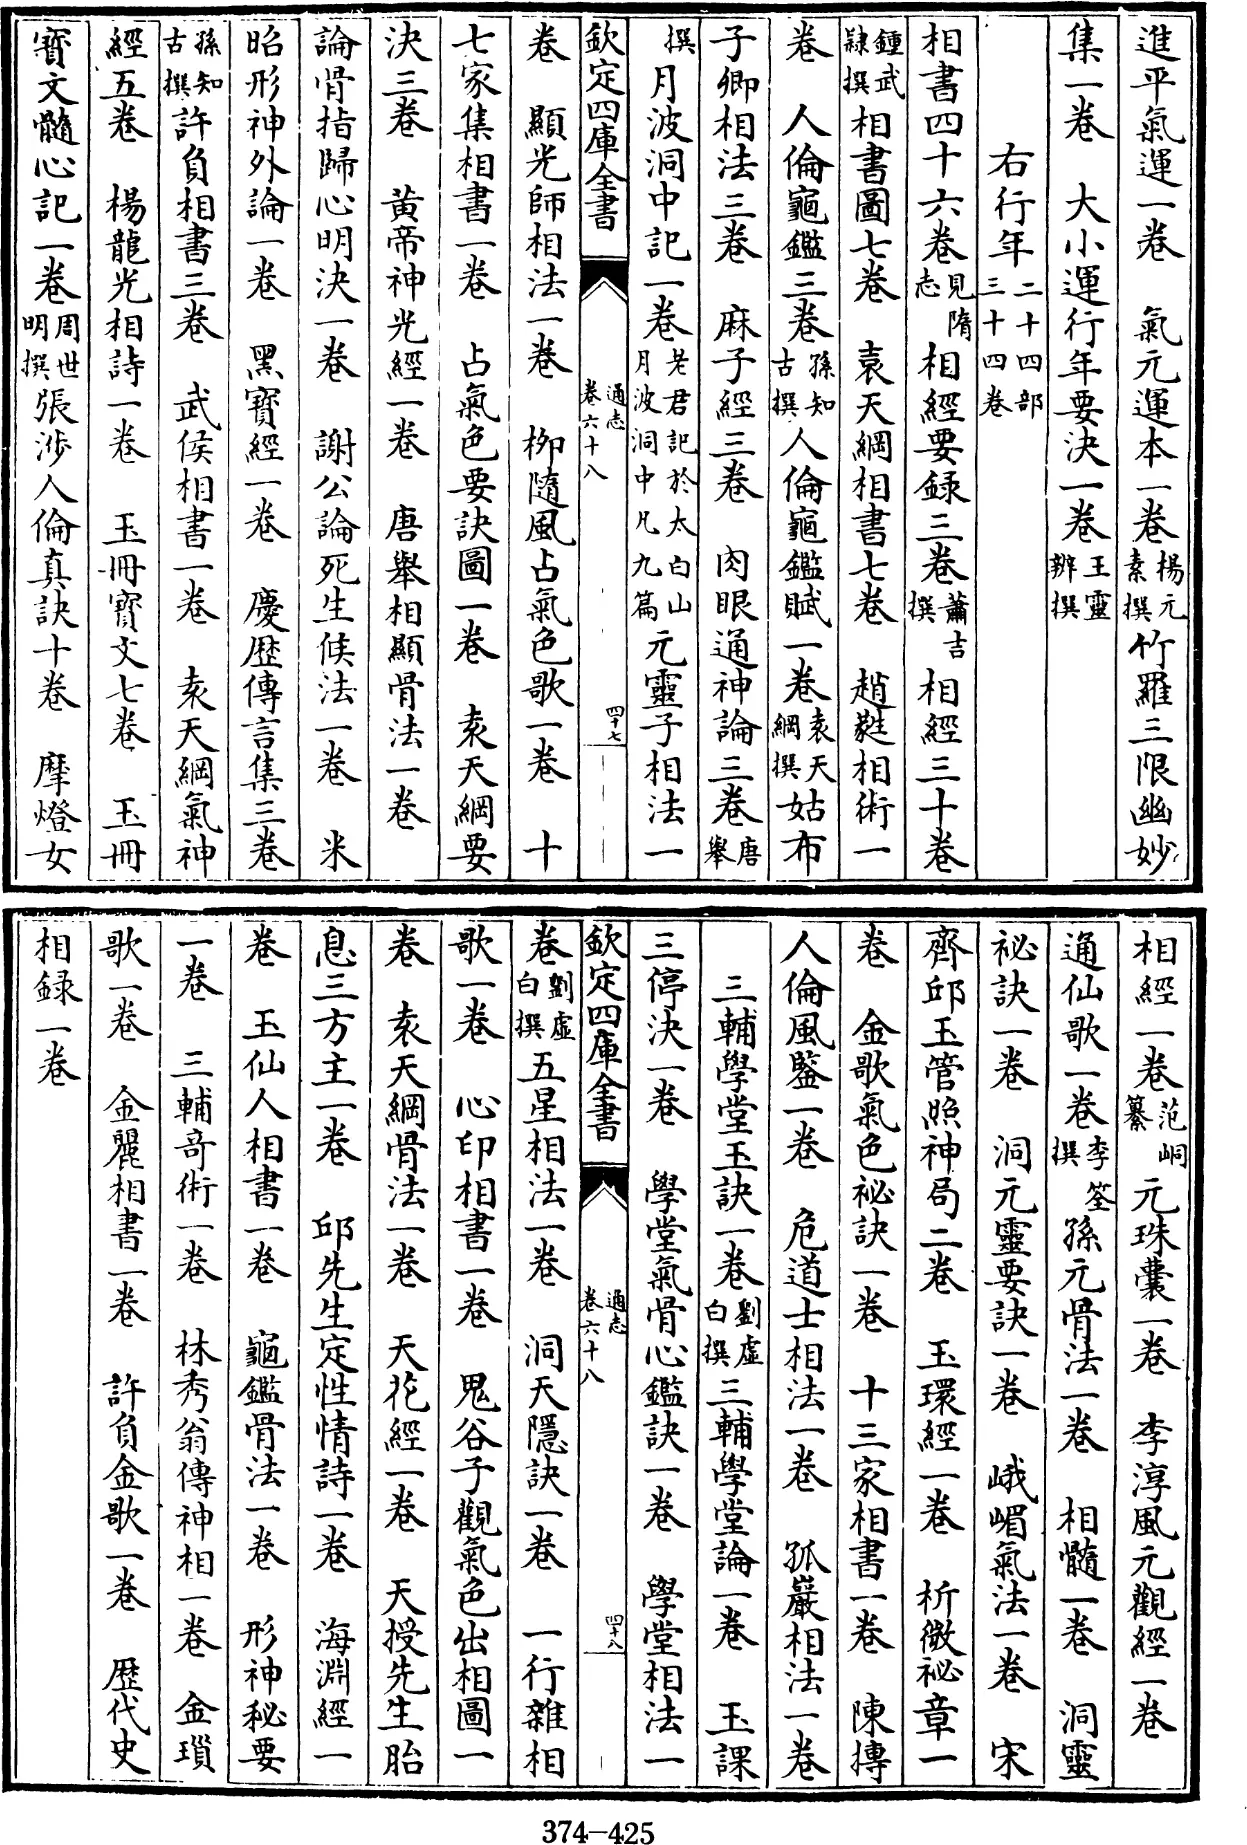 進平氣運一卷　氣元運本一卷楊元素撰竹羅三限幽妙
集一卷　大小運行年要決一卷王靈辨撰
右行年二十四部三十四卷
相書四十六卷見隋志相經要録三卷蕭吉撰　相經三十卷
鍾武隸撰相書圖七卷　袁天綱相書七卷　趙蕤相術一
卷　人倫龜鑑三卷孫知古撰人倫龜鑑賦一卷袁天綱撰姑布
子卿相法三卷　麻子經三卷　肉眼通神論三卷唐舉
撰月波洞中記一卷老君記於太白山月波洞中凡九篇元靈子相法一
欽定四庫全書　通志卷六十八　四十七
卷　顯光師相法一卷　栁隨風占氣色歌一卷　十
七家集相書一卷　占氣色要訣圖一卷　袁天綱要
決三卷　黄帝神光經一卷　唐舉相顯骨法一卷
論骨指歸心明決一卷　謝公論死生候法一卷　米
昭形神外論一卷　黑寳經一卷　慶歴傳言集三卷
孫知古撰許負相書三卷　武侯相書一卷　袁天綱氣神
經五卷　楊龍光相詩一卷　玉冊寳文七卷　玉冊
寳文髓心記一卷周世明撰張涉人倫真訣十卷　摩燈女
相經一卷范峒纂元珠囊一卷　李淳風元觀經一卷
通仙歌一卷李筌撰孫元骨法一卷　相髓一卷　洞靈
祕訣一卷　洞元靈要訣一卷　峨嵋氣法一卷　宋
齊邱玉管照神局二卷　玉環經一卷　析微祕章一
卷　金歌氣色祕訣一卷　十三家相書一卷　陳摶
人倫風鑒一卷　危道士相法一卷　孤巖相法一卷
三輔學堂玉訣一卷劉虛白撰三輔學堂論一卷　玉課
三停決一卷　學堂氣骨心鑑訣一卷　學堂相法一
欽定四庫全書　通志卷六十八　四十八
卷劉虛白撰五星相法一卷　洞天隱訣一卷　一行雜相
歌一卷　心印相書一卷　鬼谷子觀氣色出相圖一
卷　袁天綱骨法一卷　天花經一卷　天授先生胎
息三方主一卷　邱先生定性情詩一卷　海淵經一
卷　玉仙人相書一卷　龜鑑骨法一卷　形神秘要
一卷　三輔竒術一卷　林秀翁傳神相一卷　金瑣
歌一卷　金麗相書一卷　許負金歌一卷　歴代史
相録一卷
374-425